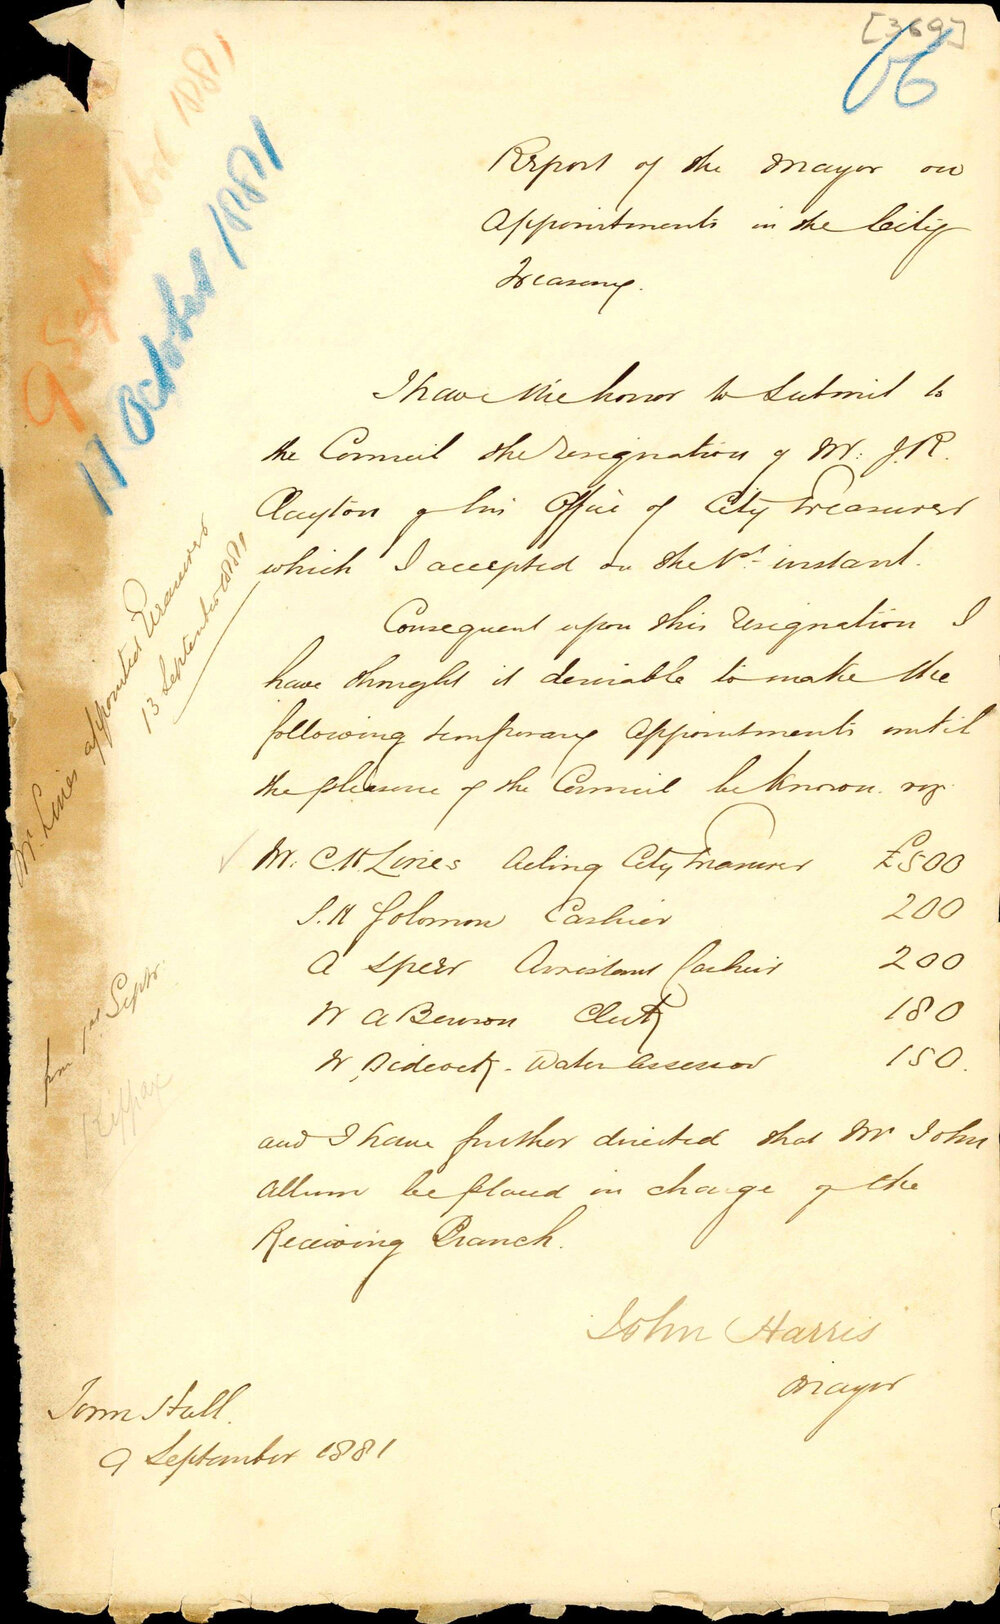 [369]
66
9 September 1881
11 October 1881
Report of the Mayor on
Appointments in the City
Treasury.
I have the honor to submit to
the Council the resignation of Mr. J.R.
Clayton of his Office of City Treasurer
which I accepted on the 1st instant.
Consequent upon this resignation I
have thought it desirable to make the
following temporary appointments until
the pleasure of the Council be known. viz
Mr. C.H. Lines Acting City Treasurer £500
S.H Solomon Cashier 200
A Speer Assistant Cashier 200
W A Benson Clerk 180
W. Didcock - Water Assessor 150.
and I have further directed that Mr John
Allum be placed in charge of the
Receiving Branch.
John Harris
Mayor
Town Hall.
9 September 1881
Mr. Lines appointed Treasurer
13 September 1881
from 1st Septr.
Kippax